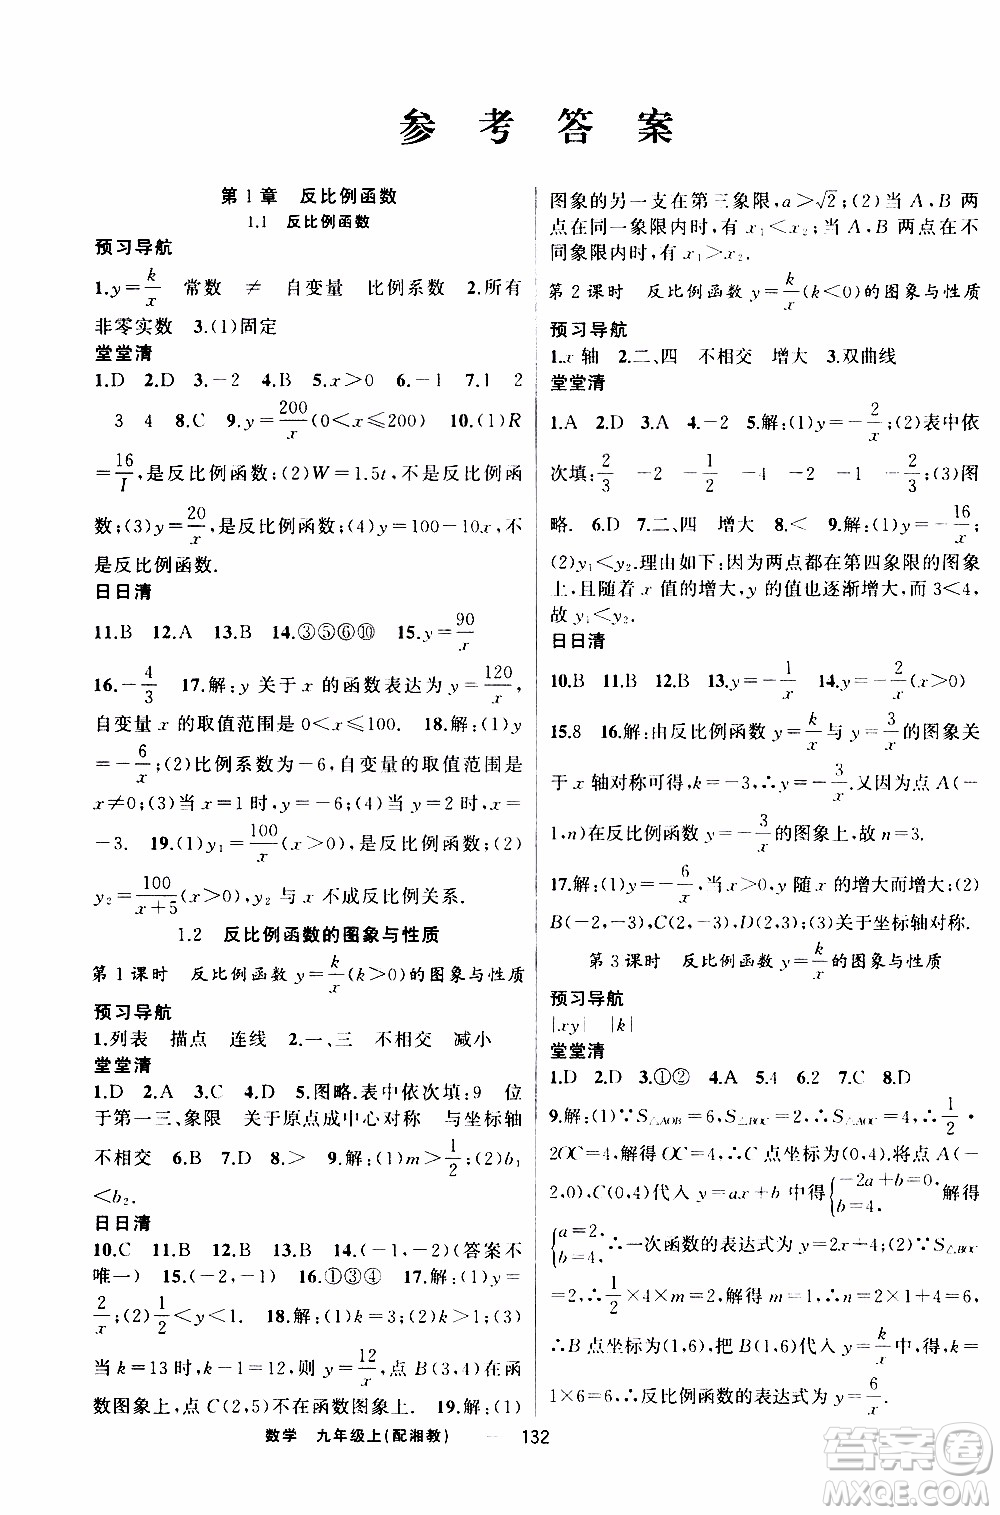 参考答案
第1章 反比例函数
1.1 反比例函数
预习导航
1.y=k/x 常数 ≠ 自变量 比例系数 2.所有
非零实数 3.(1)固定
堂堂清
1.D 2.D 3.-2 4.B 5.x>0 6.-1 7.1 2
3 4 8.C 9.y=200/x(0<x≤200) 10.(1)R
=16/I,是反比例函数;(2)W=1.5t,不是反比例函
数;(3)y=20/x,是反比例函数;(4)y=100-10x,不
是反比例函数.
日日清
11.B 12.A 13.B 14.①③⑤⑥⑩ 15.y=90/x
16.-4/3 17.解:y关于x的函数表达为y=120/x,
自变量x的取值范围是0<x≤100. 18.解:(1)y
=-6/x;(2)比例系数为-6,自变量的取值范围是
x≠0;(3)当x=1时,y=-6;(4)当x=2时,y=
-3. 19.(1)y₁=100/x(x>0),是反比例函数;(2)
y₂=100/(x+5),y₂与x不成反比例关系.
1.2 反比例函数的图象与性质
第1课时 反比例函数y=k/x(k>0)的图象与性质
预习导航
1.列表 描点 连线 2.一、三 不相交 减小
堂堂清
1.D 2.A 3.C 4.D 5.图略.表中依次填:9 位
于第一、三象限 关于原点成中心对称 与坐标轴
不相交 6.B 7.D 8.> 9.解:(1)m>1/2;(2)b₁
<b₂.
日日清
10.C 11.B 12.A 13.B 14.(-1,-2)(答案不
唯一) 15.(-2,-1) 16.①③④ 17.解:(1)y=
2/x;(2)1/2<y<1. 18.解:(1)k=3;(2)k>1;(3)
当k=13时,k-1=12,则y=12/x,点B(3,4)在函
数图象上,点C(2,5)不在函数图象上. 19.解:(1)
图象的另一支在第三象限,a>√2;(2)当A,B两
点在同一象限内时,有x₁<x₂;当A,B两点在不
同象限内时,有x₁>x₂.
第2课时 反比例函数y=k/x(k<0)的图象与性质
预习导航
1.x轴 2.二、四 不相交 增大 3.双曲线
堂堂清
1.A 2.D 3.A 4.-2 5.解:(1)y=-2/x;(2)表中依
次填:2/3 -2 -1/2 -4 -2 -1 -2/3;(3)图
略. 6.D 7.二、四 增大 8.< 9.解:(1)y=-16/x;
(2)y₁<y₂.理由如下:因为两点都在第四象限的图象
上,且随着x值的增大,y的值也逐渐增大,而3<4,
故y₁<y₂.
日日清
10.B 11.D 12.B 13.y=-1/x 14.y=-2/x(x>0)
15.8 16.解:由反比例函数y=k/x与y=3/x的图象关
于x轴对称可得,k=-3,∴y=-3/x.又因为点A(-
1,n)在反比例函数y=-3/x的图象上,故n=3.
17.解:(1)y=-6/x,当x>0,y随x的增大而增大;(2)
B(-2,-3),C(2,-3),D(2,3);(3)关于坐标轴对称.
第3课时 反比例函数y=k/x的图象与性质
预习导航
|xy| |k|
堂堂清
1.D 2.B 3.①② 4.A 5.4 6.2 7.C 8.D
9.解:(1)∵S△AOB=6,S△BOC=2,∴S△AOC=4,∴1/2·
2OC=4,解得OC=4,∴C点坐标为(0,4),将点A(-
2,0),C(0,4)代入y=ax+b中得{-2a+b=0, b=4. 解得
{a=2, b=4. ∴一次函数的表达式为y=2x+4;(2)∵S△BOC
=2,∴1/2×4×m=2,解得m=1,∴n=2×1+4=6,
∴B点坐标为(1,6),把B(1,6)代入y=k/x中,得k=
1×6=6,∴反比例函数的表达式为y=6/x.
数学 九年级上(配湘教) 132
作业精灵
WWW.MMZYJL.COM